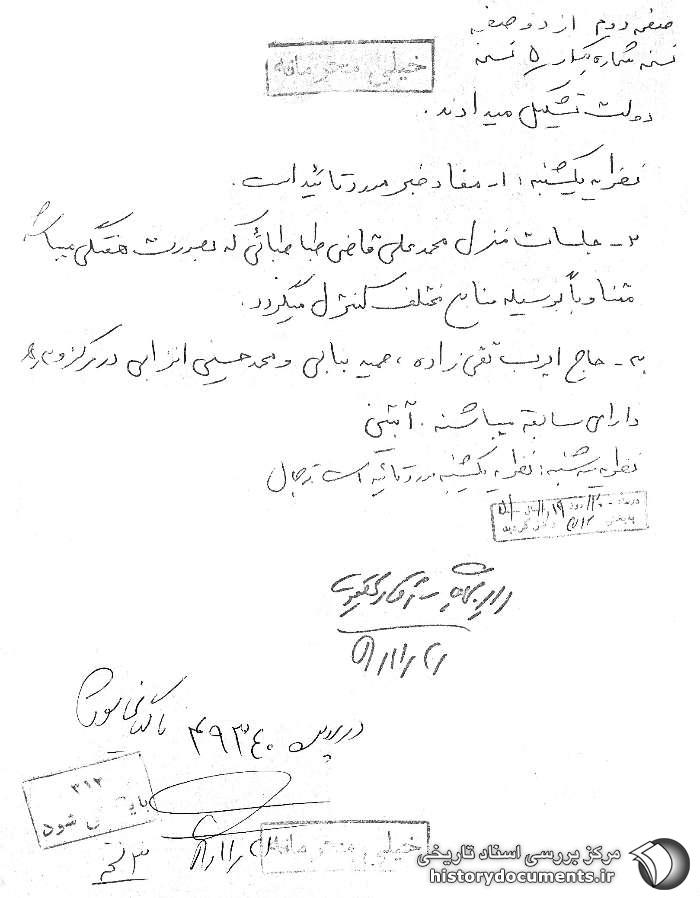 صفحه دوم از دو صفحه
نسخه شماره یک از ۵ نسخه
خیلی محرمانه
دولت تشکیل میدادند.
نظریه یکشنبه: ۱ـ مفاد خبر مورد تائید است.
۲ـ جلسات منزل محمدعلی قاضی طباطبائی که بصورت هفتگی میباشد
متناوباً بوسیله منابع مختلف کنترل میگردد.
۳ـ حاج ادیب تقی زاده، حمید بنابی و محمدحسین انزابی در مرکز و
دارای سابقه میباشند. آبتین
نظریه سه شنبه: نظریه یکشنبه مورد تائید است. ژرچال
۴۹۳۴۰
۳۱۲
بایگانی شود
خیلی محرمانه
مرکز بررسی اسناد تاریخی
historydocuments.ir